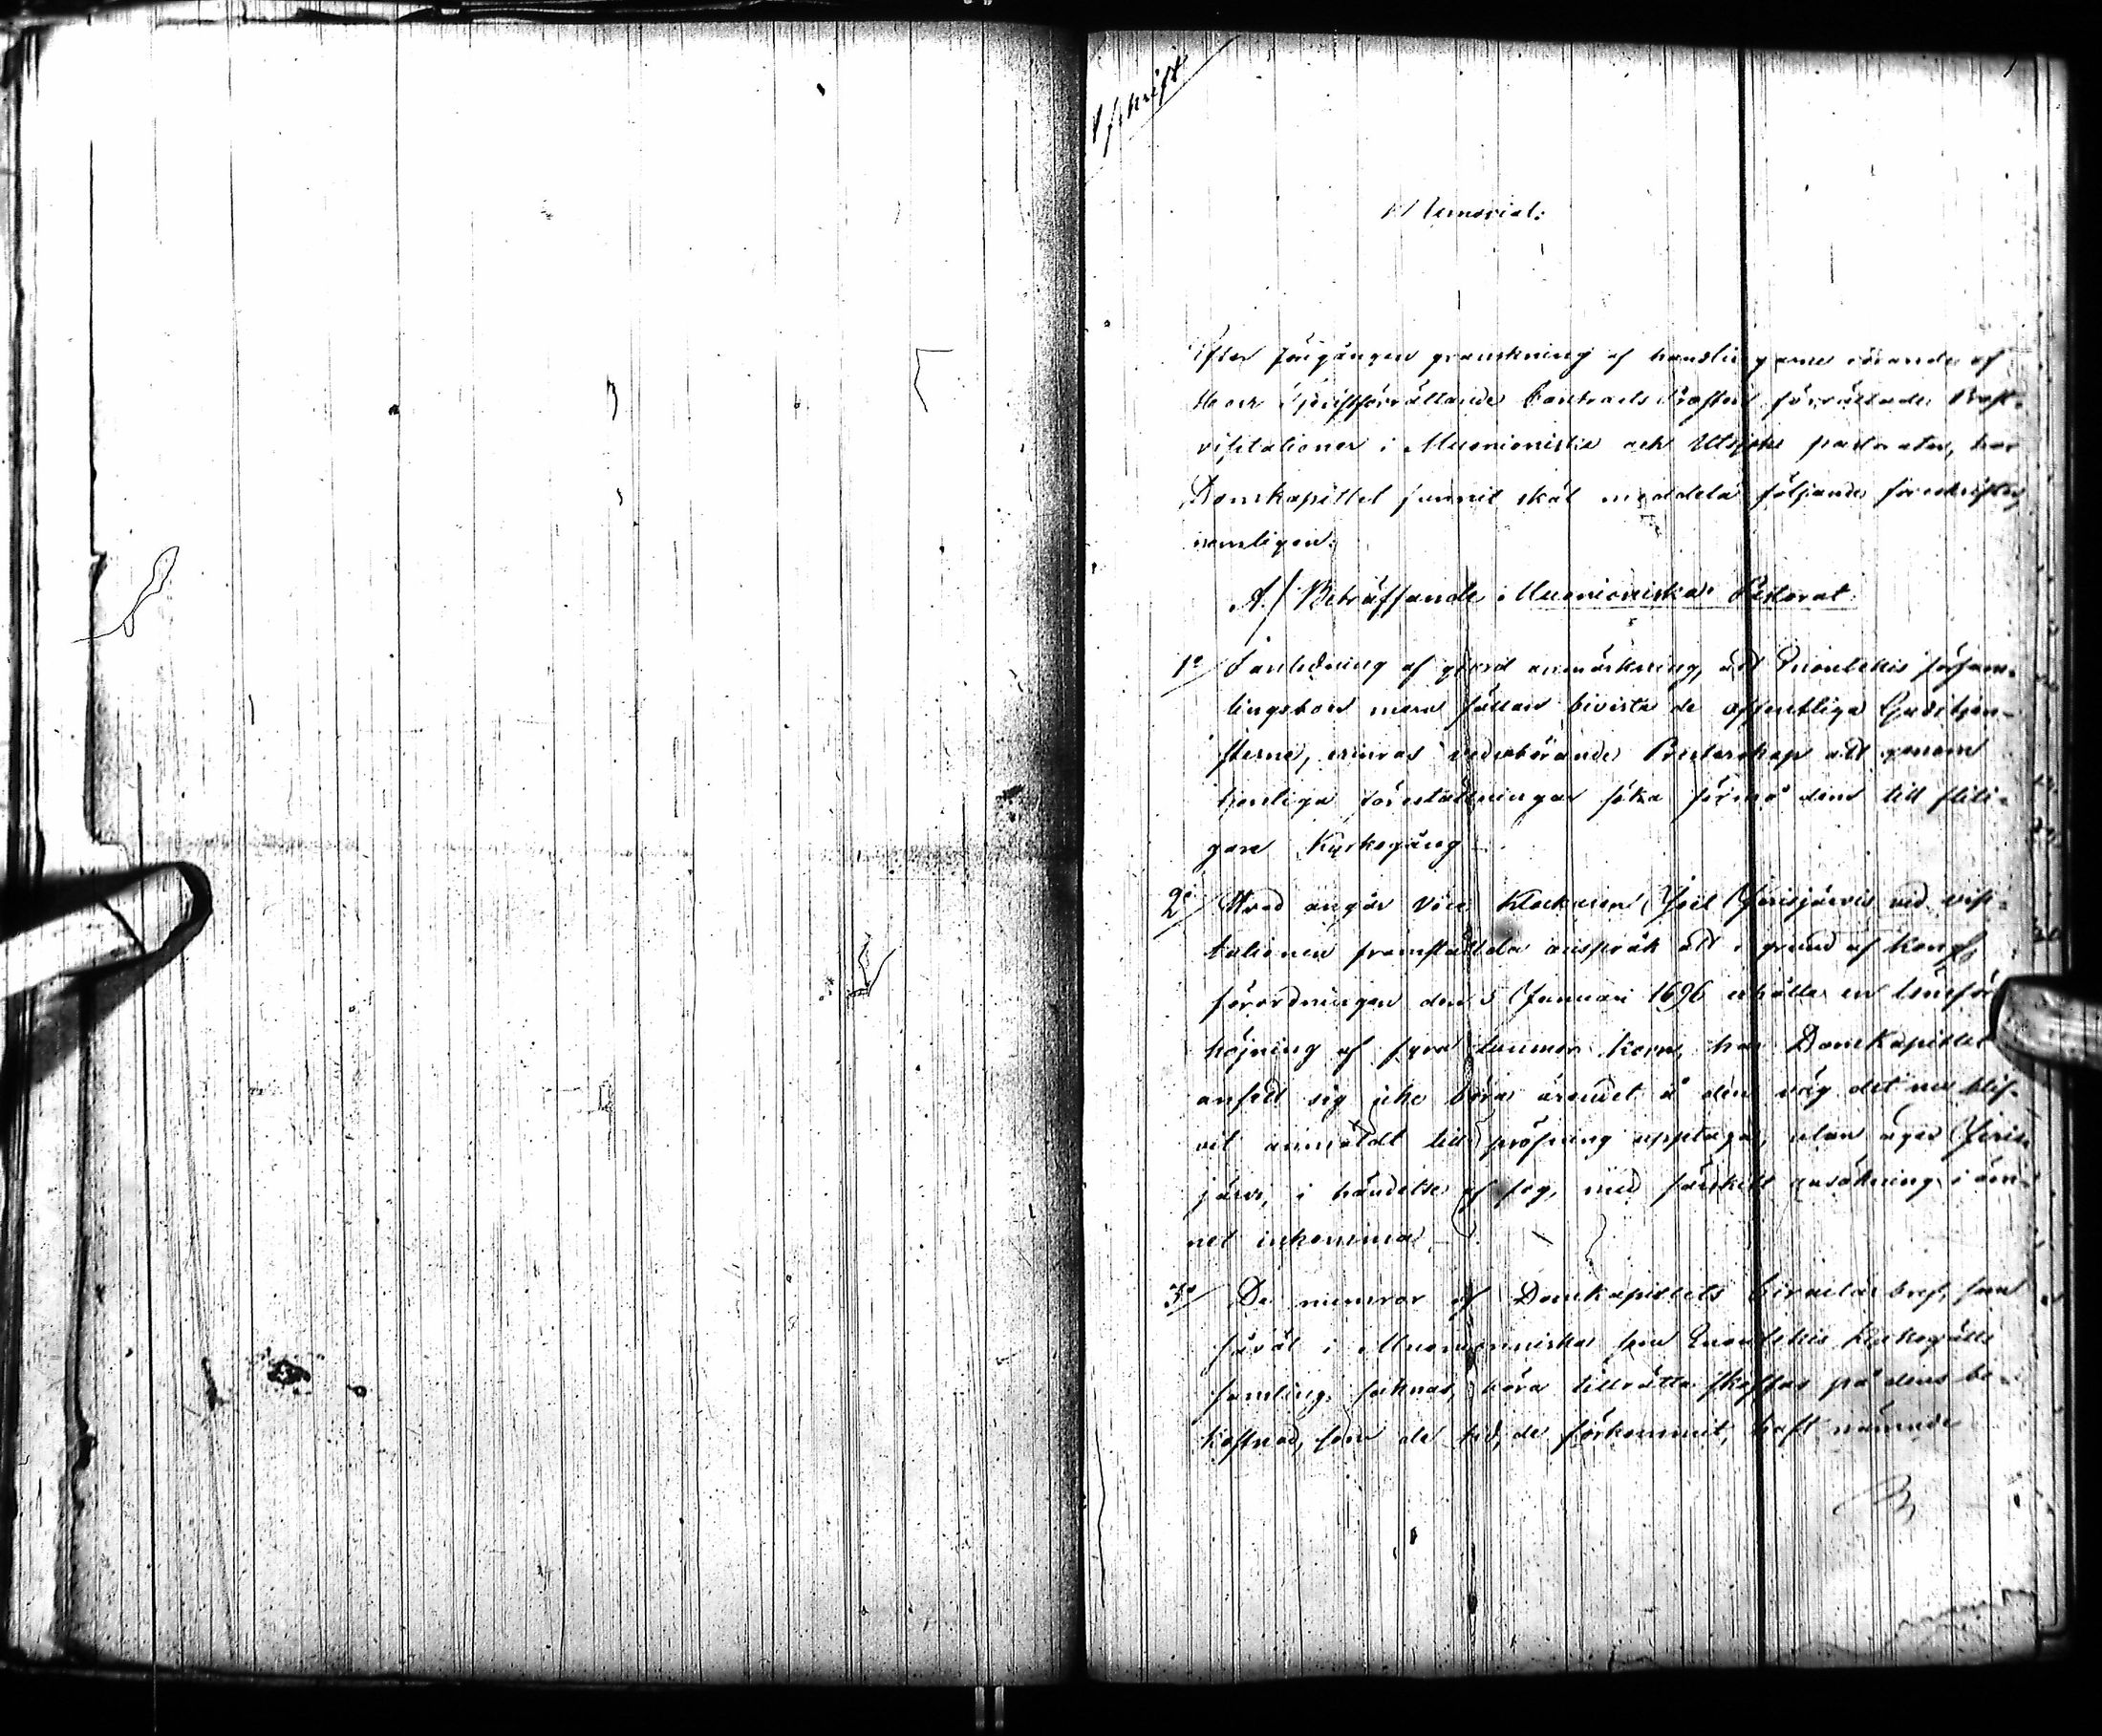 Afskrift
Memorial:
Efter föregången granskning af handlingarne rörande af
Herr Tjenstförrättande Contracts Prosten förrättade Prost-
visitationer i Muonioniska och Utsjoki pastorater, har
Domkapitlet funnit skäl meddela följande föreskrifter,
nemligen:
A./ Beträffande Muonioniska Pastorat
1o/ I anledning af gjord anmärkning, att Enontekis försam-
lingsboer mera sällan bivista de offentliga Gudstjen-
sterne, erinras vederbörande Presterskap att genom
tjenliga föreställningar söka förmå dem till fliti-
gare Kyrkogång.
2o/ Hvad angår vice Klockaren Joel Jerisjärvis vid visi-
tationen framstälda anspråk att i grund af Kongl.
förordningen den 5 Januari 1696 erhålla en löneför-
höjning af fyra tunnor korn, har Domkapitlet
ansett sig icke böra ärendet å den väg det nu blif-
vit anmäldt till pröfning upptaga, utan äger Jeris-
järvi, i händelse af fog, med särskilt ansökning i äm-
net inkomma.
3o/ De numror af Domkapitlets Cirkulär bref, som
såväl i Muonioniska som Enontekis Kyrkogälls
samling saknas, böra tillrätta skaffas på dens be-
kostnad, som de tid, de förkommit, haft nämnde